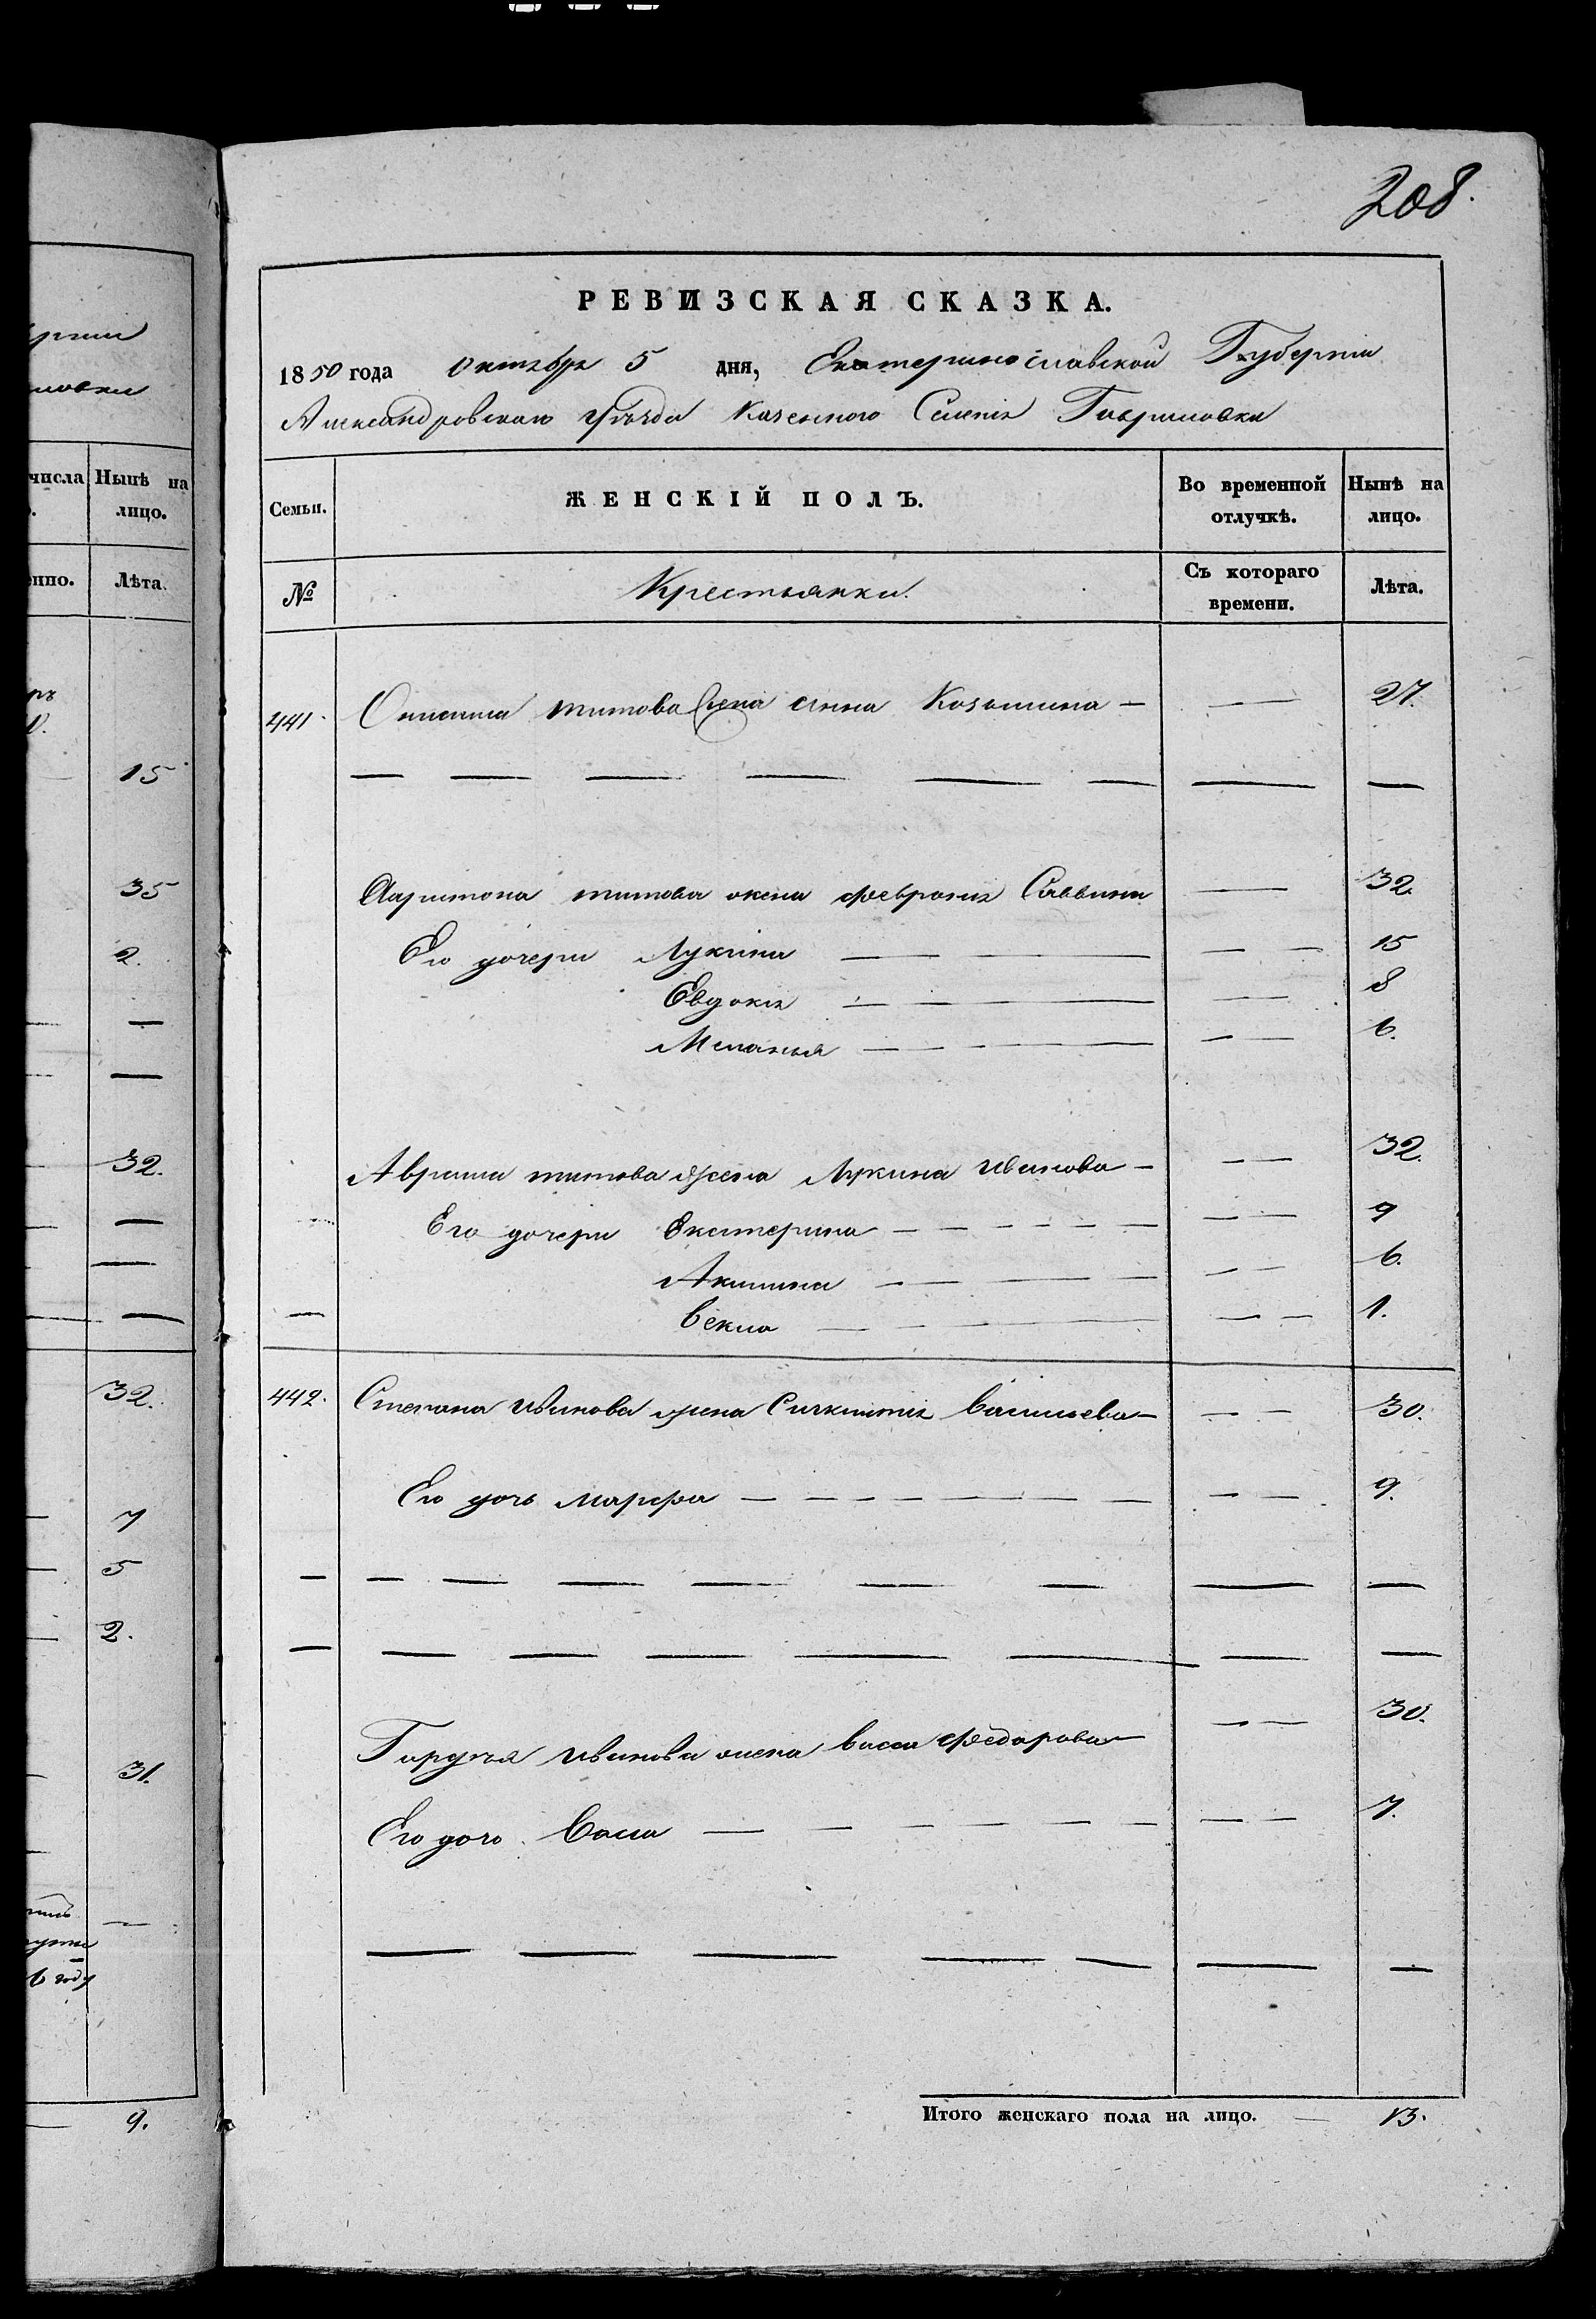 208.
РЕВИЗСКАЯ СКАЗКА.
1850 года октября 5 дня, Екатеринославской Губерніи
Александровскаго уѣзда Казенного Селенія Гавриловки
числа Нынѣ на лицо.
Семьи. ЖЕНСКІЙ ПОЛЪ. Во временной отлучкѣ. Нынѣ на лицо.
Лѣта.
№ Крестьянки. Съ котораго времени. Лѣта.
441. титова жена анна Козьмина — — 27.
15
35
Харитона титова жена феврония Саввина — 32.
2.
Его дочери Лукия — — 15
Евдокия — — 8
Меланья — — 6.
32.
Аврама титова жена Иванова — — 32.
Его дочери Екатерина — — 9
Акилина — — 6.
Векла — — 1.
32.
442. Степана Иванова жена Васильева — — 30.
Его дочь Марфа — — 9.
7
5
2.
31.
Гордѣя Иванова жена васса Федорова — — 30.
Его дочь Васса — — 7.
6 году
9.
Итого женскаго пола на лицо. — 13.